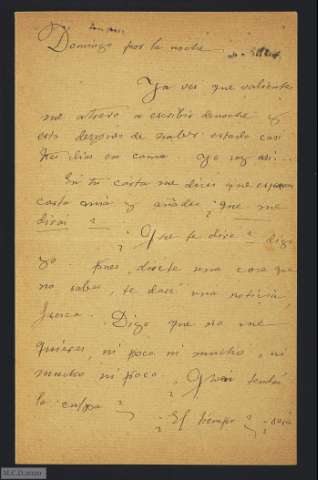 Domingo por la noche
Ya ves que valiente
me atrevo a escribir de noche y
esto despues de haber estado casi
tres dias en cama. Yo soy asi...
En tu carta me dices que esperas
carta mia y añades ¿que me
diras?
¿Que te dire? digo
yo pues, decirte una cosa que
no sabes, te daré una noticia
fresca. Digo que no me
quieres, ni poco ni mucho, ni
mucho ni poco. ¿Quien tendrá
la culpa?
¿El tiempo?
M.C.D. 2020